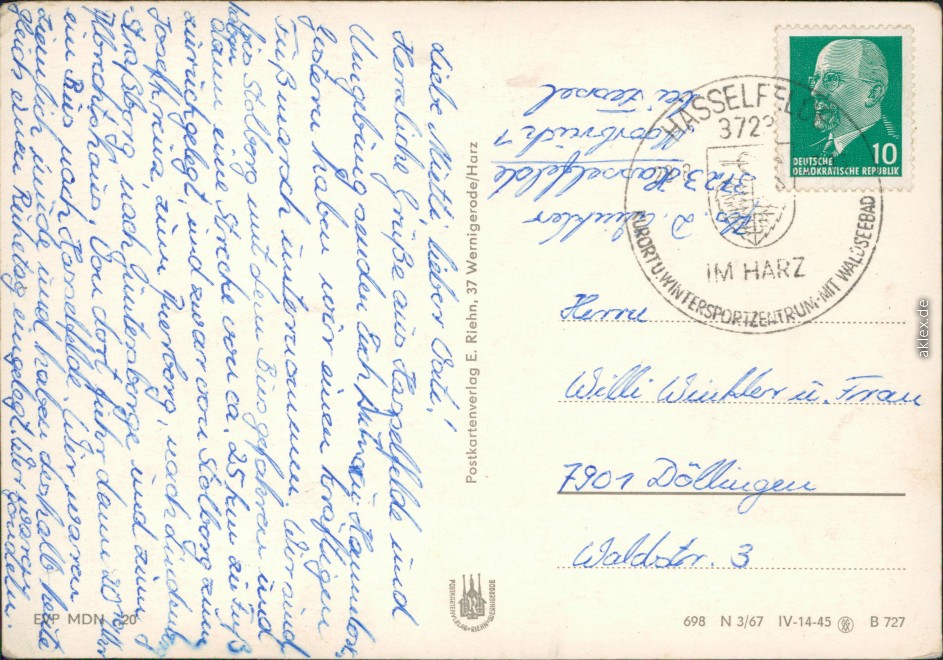 Liebe Mutti, lieber Vati!
Herzliche Grüße aus Hasselfelde und
Umgebung senden Euch
Gestern haben wir einen kräftigen
Fußmarsch unternommen. Wir sind
bis Stolberg mit dem Bus gefahren und
haben
dann eine Strecke von ca. 25 km zu Fuß
zurückgelegt, und zwar von Stolberg zum
Josefkreuz, zum Auerberg, nach
Straßberg, nach Güntersberge und zum
Albrechtshaus. Von dort fuhr dann 20
ein Bus nach Hasselfelde. Wir waren
ziemlich müde und haben deshalb heute
gleich einen Ruhetag eingelegt. Wir waren
Postkartenverlag E. Riehn, 37 Wernigerode/Harz
POSTKARTENVERLAG RIEHN WERNIGERODE
EVP MDN -20
Abs. D. Winkler
3723 Hasselfelde
bei Kessel
HASSELFELDE
3723
IM HARZ
KURORT U. WINTERSPORTZENTRUM - MIT WALDSEEBAD
10
DEUTSCHE
DEMOKRATISCHE REPUBLIK
Herrn
Willi Winkler u. Frau
7901 Döllingen
Waldstr. 3
698 N 3/67 IV-14-45 B 727
aklex.de